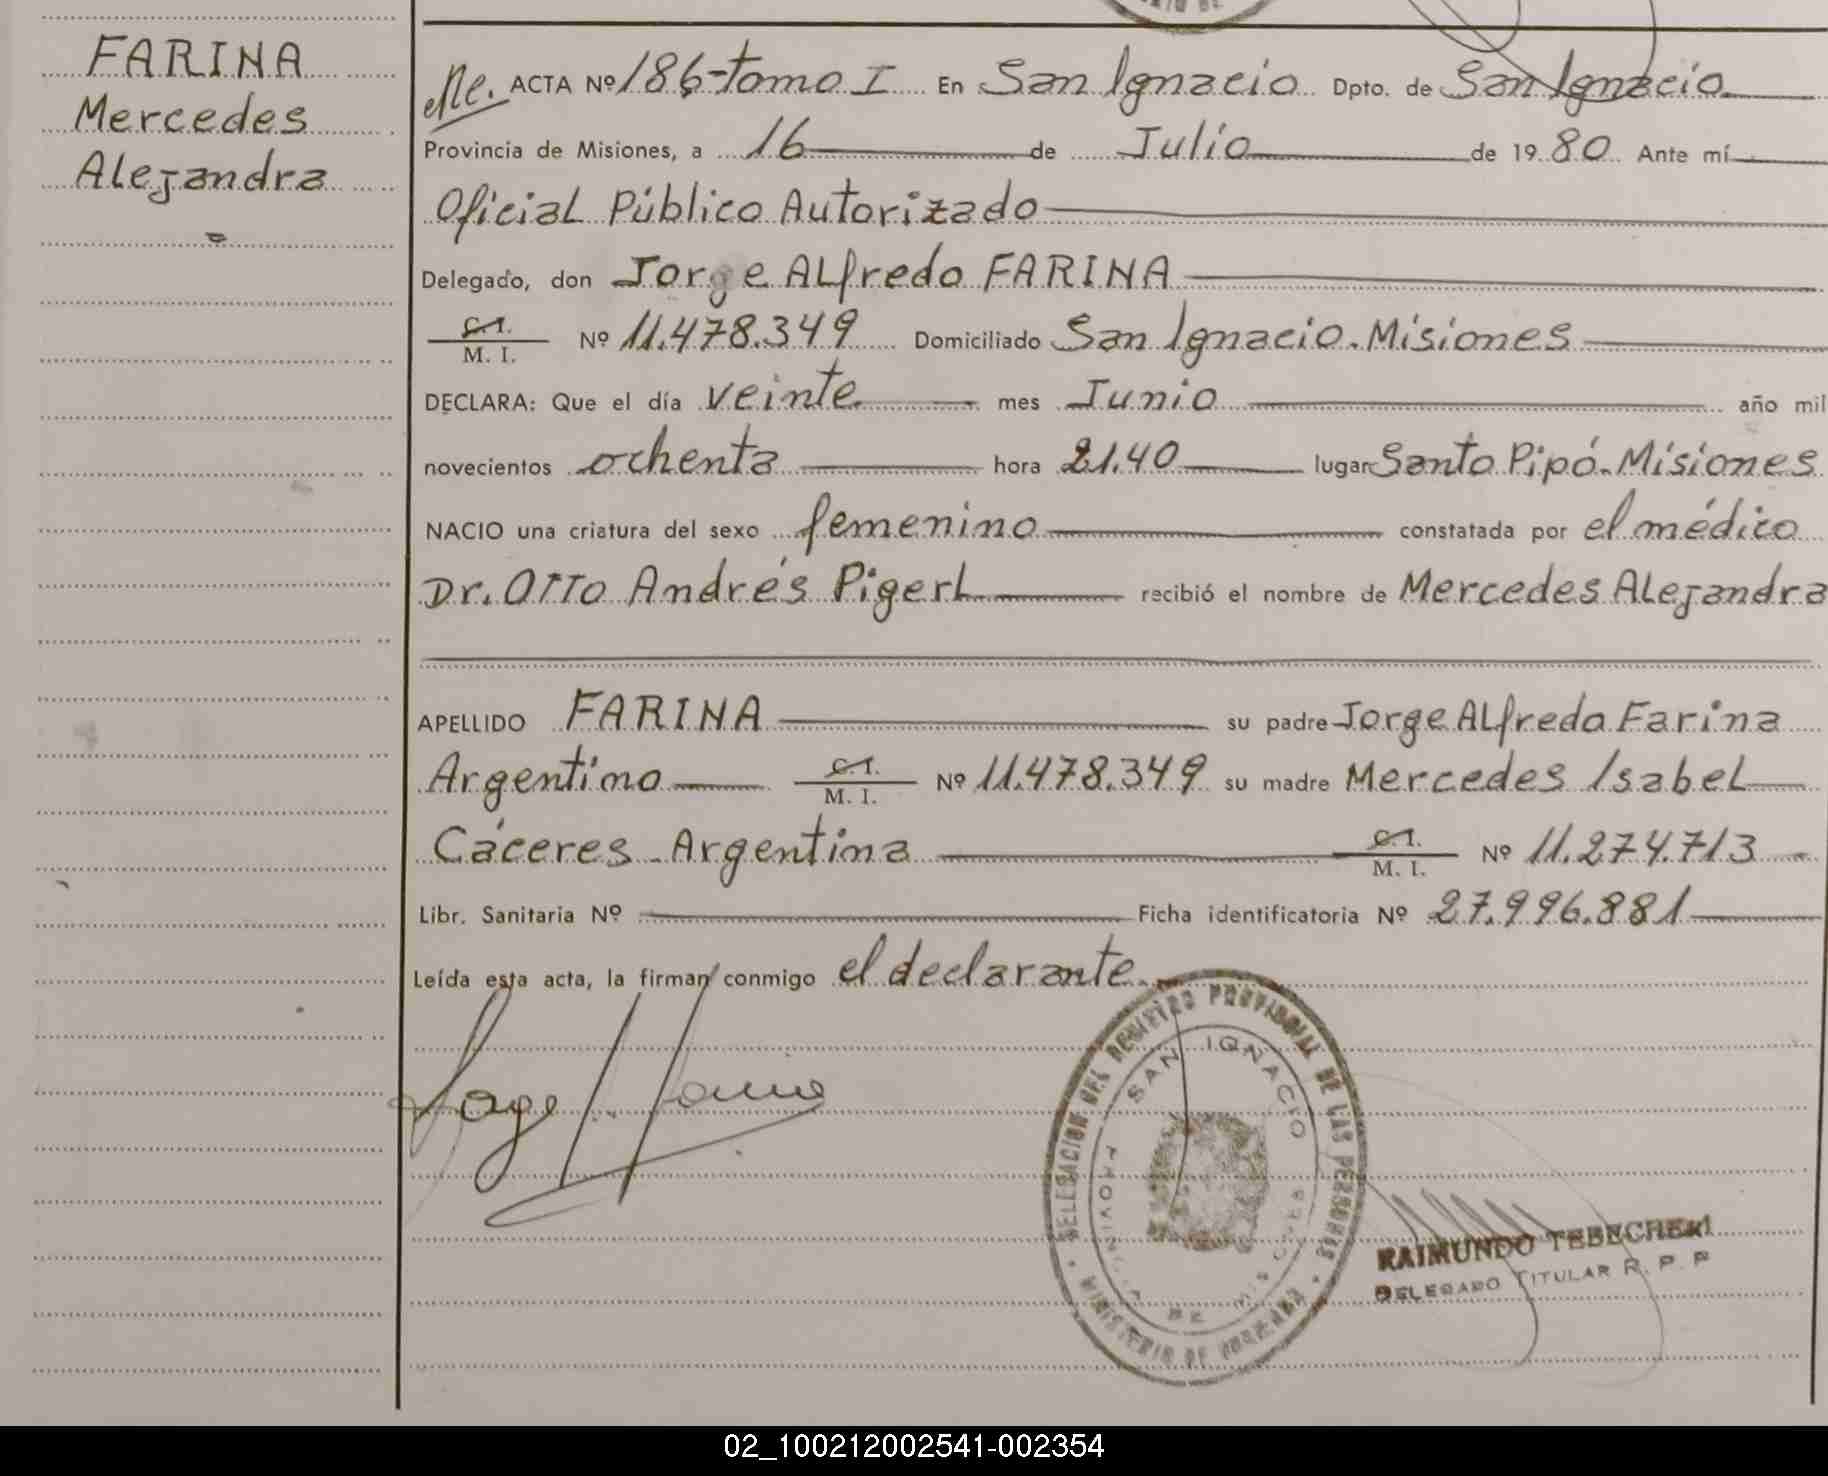 FARINA
Mercedes
Alejandra
ACTA Nº 186-tomo I En San Ignacio Dpto. de San Ignacio
Provincia de Misiones, a 16 de Julio de 1980 Ante mí
Oficial Público Autorizado
Delegado, don Jorge Alfredo FARINA
C.I.
M. I. Nº 11.478.349 Domiciliado San Ignacio. Misiones
DECLARA: Que el día veinte mes Junio año mil
novecientos ochenta hora 21.40 lugar Santo Pipó. Misiones
NACIO una criatura del sexo femenino constatada por el médico
Dr. Otto Andrés Pigerl recibió el nombre de Mercedes Alejandra
APELLIDO FARINA su padre Jorge Alfredo Farina
Argentino C.I. M. I. Nº 11.478.349 su madre Mercedes Isabel
Cáceres - Argentina C.I. M. I. Nº 11.274.713
Libr. Sanitaria Nº Ficha identificatoria Nº 27.996.881
Leída esta acta, la firman conmigo el declarante.
DELEGACION DEL REGISTRO PROVINCIAL DE LAS PERSONAS
SAN IGNACIO
PROVINCIA DE MISIONES
MINISTERIO DE GOBIERNO
RAIMUNDO TEBECHERI
DELEGADO TITULAR R. P. P
02_100212002541-002354